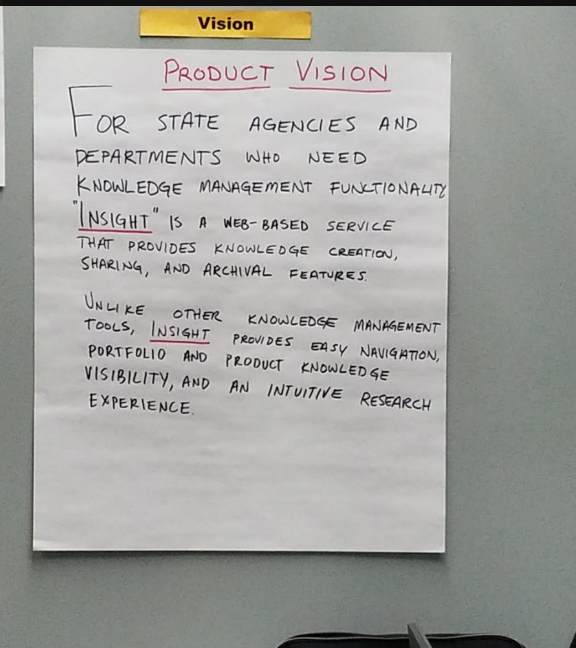 Vision
PRODUCT VISION
FOR STATE AGENCIES AND
DEPARTMENTS WHO NEED
KNOWLEDGE MANAGEMENT FUNCTIONALITY
"INSIGHT" IS A WEB-BASED SERVICE
THAT PROVIDES KNOWLEDGE CREATION,
SHARING, AND ARCHIVAL FEATURES.
UNLIKE OTHER KNOWLEDGE MANAGEMENT
TOOLS, INSIGHT PROVIDES EASY NAVIGATION,
PORTFOLIO AND PRODUCT KNOWLEDGE
VISIBILITY, AND AN INTUITIVE RESEARCH
EXPERIENCE.